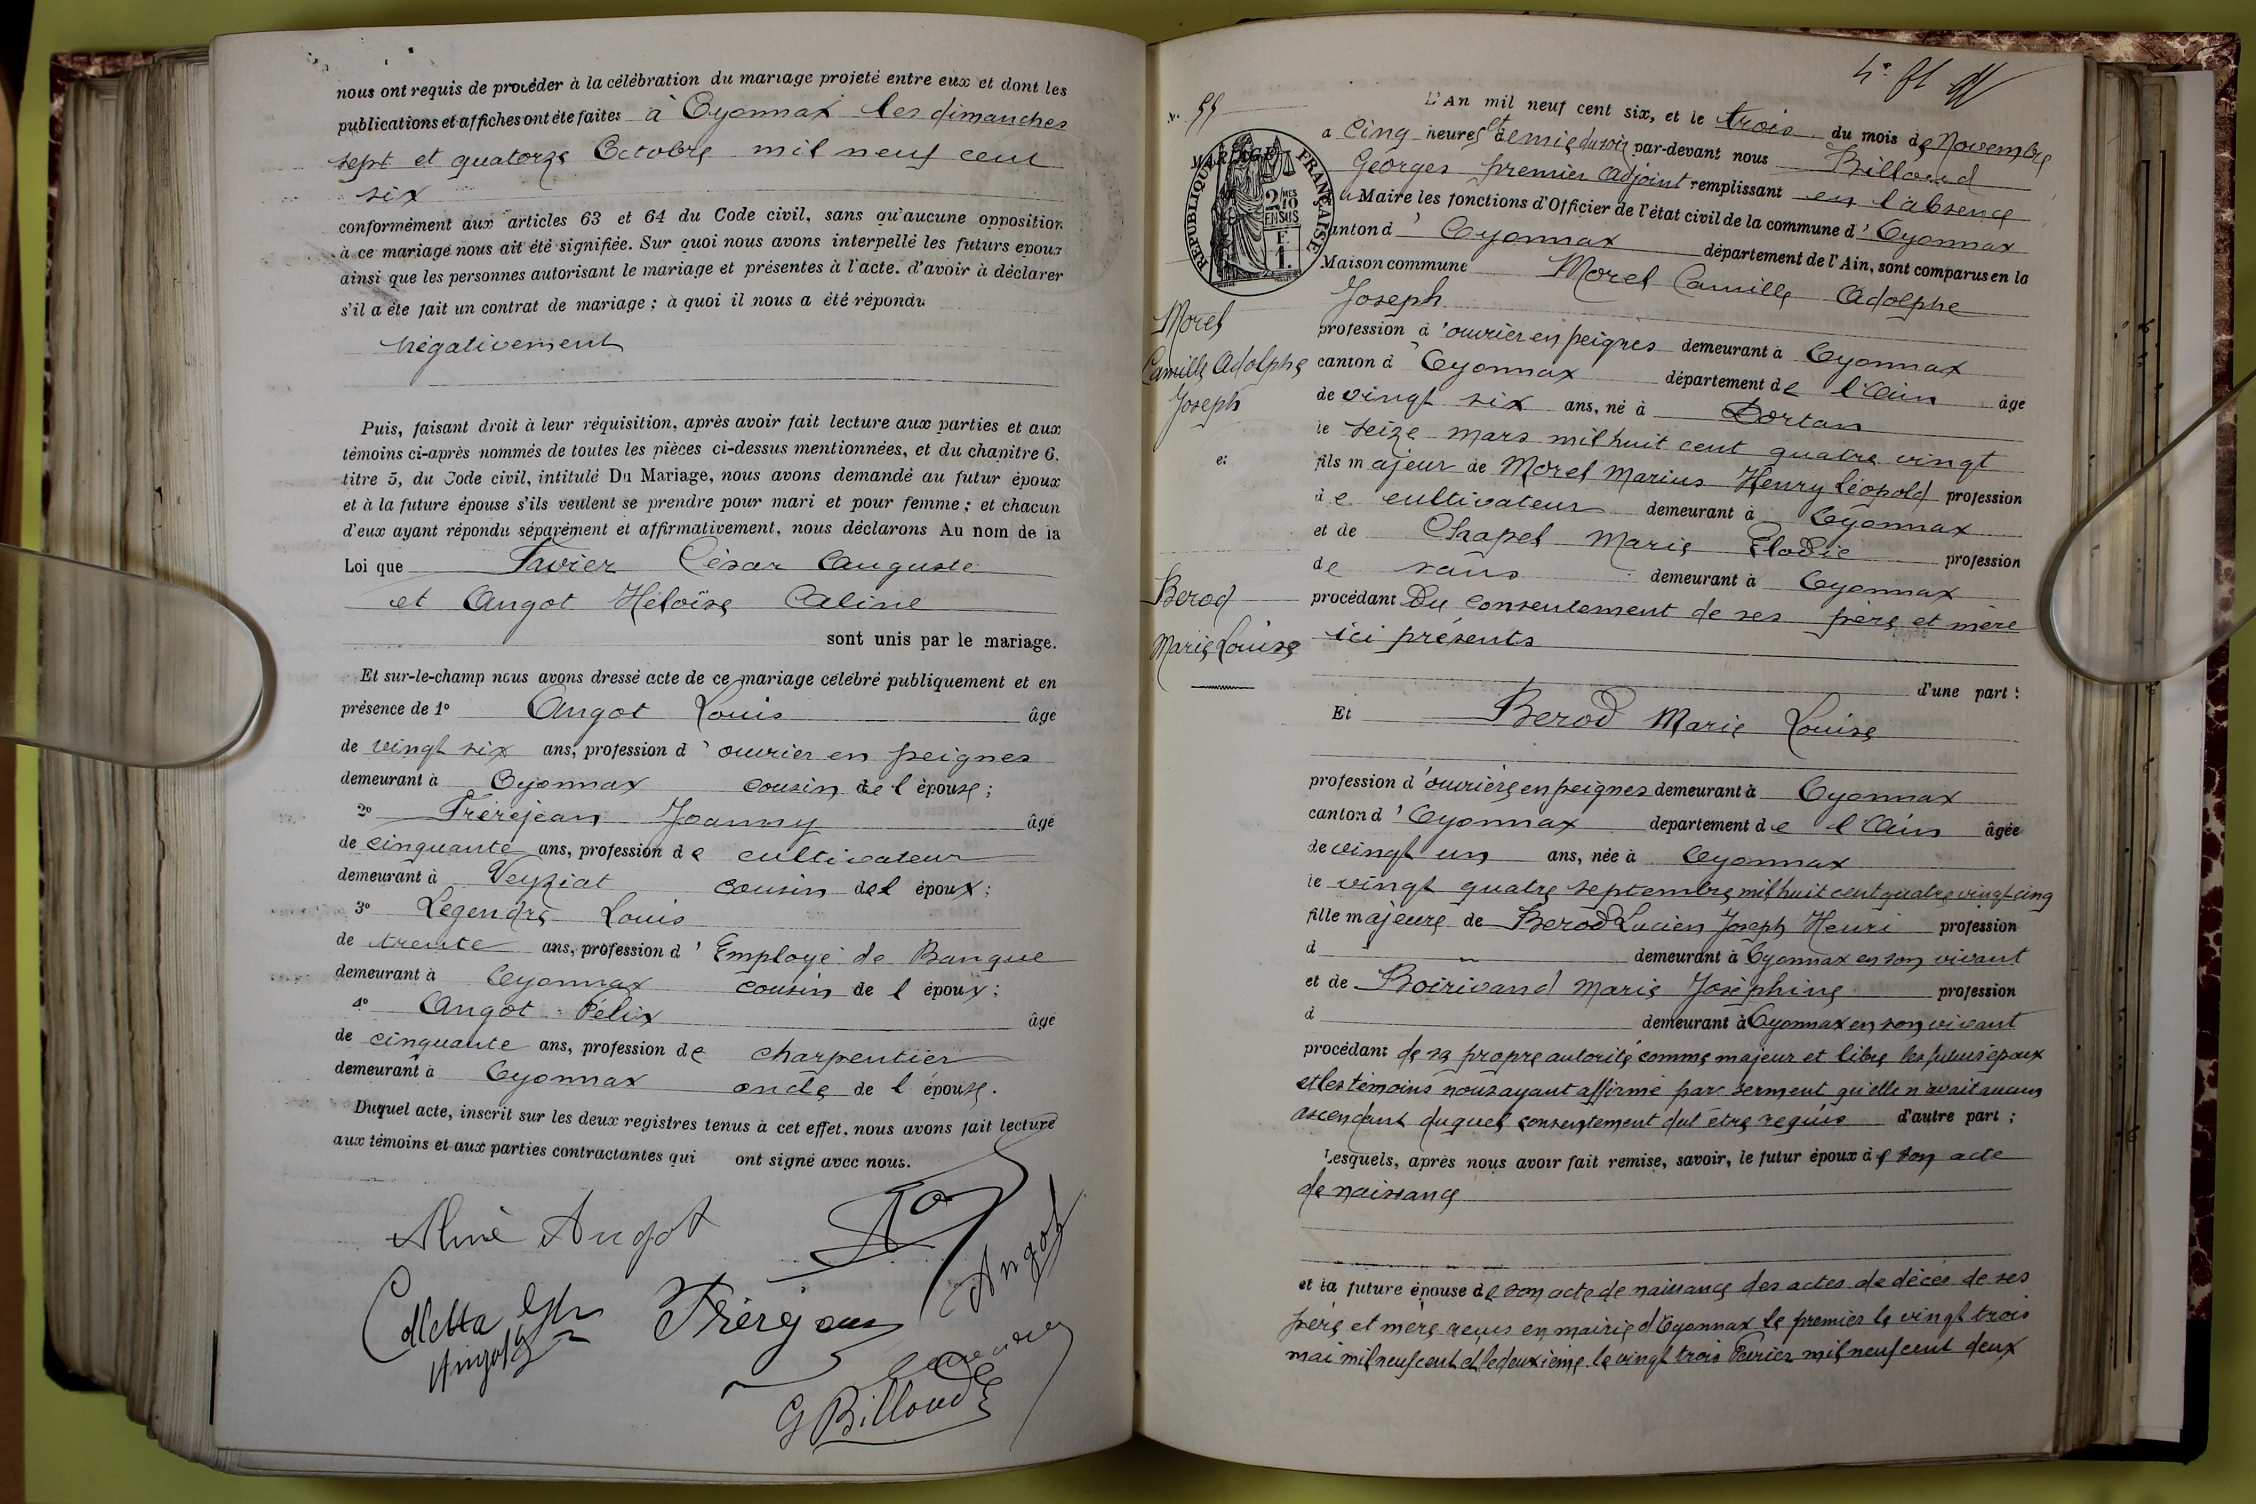 nous ont requis de procéder à la célébration du mariage projeté entre eux et dont les
publications et affiches ont été faites à Oyonnax les dimanches
sept et quatorze Octobre mil neuf cent
six
conformément aux articles 63 et 64 du Code civil, sans qu'aucune opposition
à ce mariage nous ait été signifiée. Sur quoi nous avons interpellé les futurs époux
ainsi que les personnes autorisant le mariage et présentes à l'acte. d'avoir à déclarer
s'il a été fait un contrat de mariage ; à quoi il nous a été répondu
négativement
Puis, faisant droit à leur réquisition, après avoir fait lecture aux parties et aux
témoins ci-après nommés de toutes les pièces ci-dessus mentionnées, et du chapitre 6,
titre 5, du Code civil, intitulé Du Mariage, nous avons demandé au futur époux
et à la future épouse s'ils veulent se prendre pour mari et pour femme ; et chacun
d'eux ayant répondu séparément et affirmativement, nous déclarons Au nom de la
Loi que Favier César Auguste
et Angot Héloïse Aline
sont unis par le mariage.
Et sur-le-champ nous avons dressé acte de ce mariage célébré publiquement et en
présence de 1° Angot Louis âgé
de vingt six ans, profession d'ouvrier en peignes
demeurant à Oyonnax cousin de l'épouse ;
2° Frèrejean Joanny âgé
de cinquante ans, profession de cultivateur
demeurant à Veyziat cousin de l époux ;
3° Legendre Louis
de trente ans, profession d'Employé de Banque
demeurant à Oyonnax cousin de l époux ;
4° Angot Félix âgé
de cinquante ans, profession de charpentier
demeurant à Oyonnax oncle de l épouse.
Duquel acte, inscrit sur les deux registres tenus à cet effet, nous avons fait lecture
aux témoins et aux parties contractantes qui ont signé avec nous.
Aline Angot
Angot
Colletta
Frèrejean
Angot
G Billoud
N° 99
MARIAGE
RÉPUBLIQUE FRANÇAISE
2 MES 10 EN SUS
L'An mil neuf cent six, et le trois du mois de Novembre
à Cinq heures et demie du soir par-devant nous Billoud
Georges premier Adjoint remplissant en l'absence
du Maire les fonctions d'Officier de l'état civil de la commune d'Oyonnax
canton d'Oyonnax département de l'Ain, sont comparus en la
Maison commune Morel Camille Adolphe
Joseph
profession d'ouvrier en peignes demeurant à Oyonnax
canton d'Oyonnax département de l'Ain âgé
de vingt six ans, né à Dortan
le seize mars mil huit cent quatre vingt
fils majeur de Morel Marius Henry Léopold profession
de cultivateur demeurant à Oyonnax
et de Chapel Marie Elodie profession
de sans demeurant à Oyonnax
procédant Du consentement de ses père et mère
ici présents
d'une part :
Morel
Camille Adolphe
Joseph
et
Berod
Marie Louise
Et Berod Marie Louise
profession d'ouvrière en peignes demeurant à Oyonnax
canton d'Oyonnax département de l'Ain âgée
de vingt un ans, née à Oyonnax
le vingt quatre septembre mil huit cent quatre vingt-cinq
fille majeure de Berod Lucien Joseph Henri profession
d demeurant à Oyonnax en son vivant
et de Boirivand Marie Joséphine profession
d demeurant à Oyonnax en son vivant
procédant de sa propre autorité comme majeur et libre les futurs époux
et les témoins nous ayant affirmé par serment qu'elle n'avait aucun
ascendant duquel consentement dut être requis d'autre part ;
Lesquels, après nous avoir fait remise, savoir, le futur époux de son acte
de naissance
et la future épouse de son acte de naissance des actes de décès de ses
père et mère reçus en mairie d'Oyonnax le premier le vingt trois
mai mil neuf cent et le deuxième le vingt trois Février mil neuf cent deux